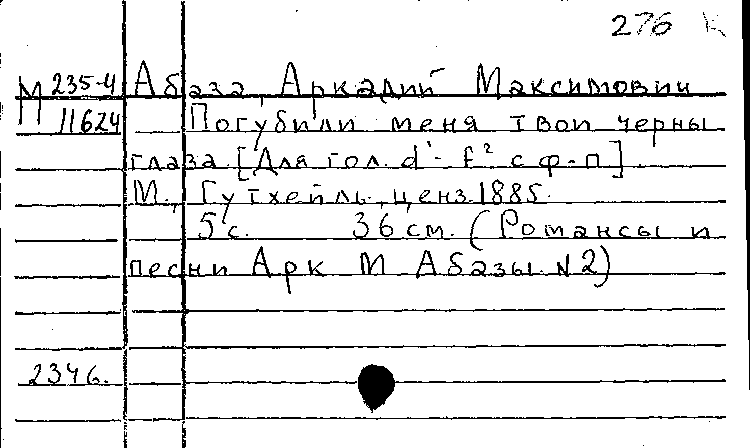 276 К
М 235-4 Абаза, Аркадий Максимович
11624 Погубили меня твои черны
глаза. [Для гол. d¹- f² с ф-п].
М., Гутхейль, ценз. 1885.
5 с. 36 см. (Романсы и
песни Арк М Абазы. №2)
2346.